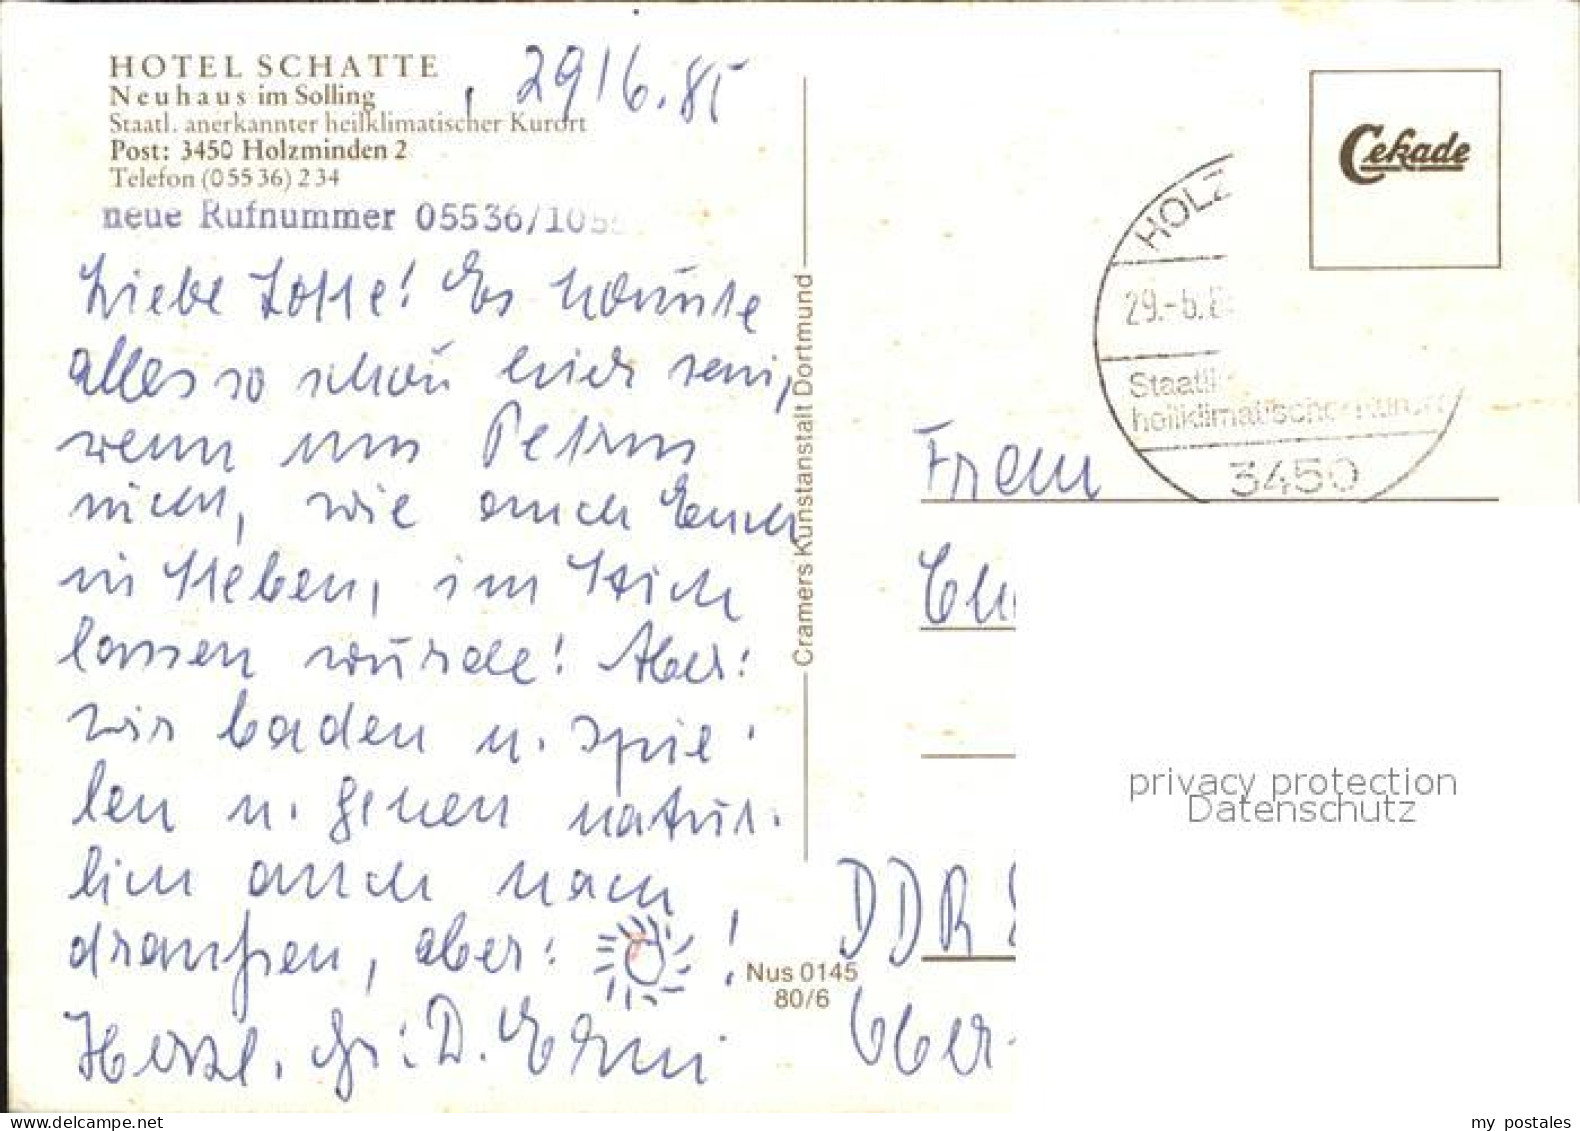 HOTEL SCHATTE
Neuhaus im Solling
Staatl. anerkannter heilklimatischer Kurort
Post: 3450 Holzminden 2
Telefon (055 36) 2 34
neue Rufnummer 05536/1055
29/6.85
Liebe Lotte! Es könnte
alles so schön hier sein,
wenn uns Petrus
nicht, wie auch Euch
in Leben, im Stich
lassen würde! Aber:
wir baden u. spie-
len u. gehen natür-
lich auch nach
draußen, aber: !
Herzl. Gr.: D. Erni
Cramers Kunstanstalt Dortmund
Nus 0145
80/6
Cekade
HOLZ
29.-6.8
Staatli
heilklimatischer Kurort
3450
Frau
DDR
Ober-
privacy protection
Datenschutz
www.delcampe.net
my postales